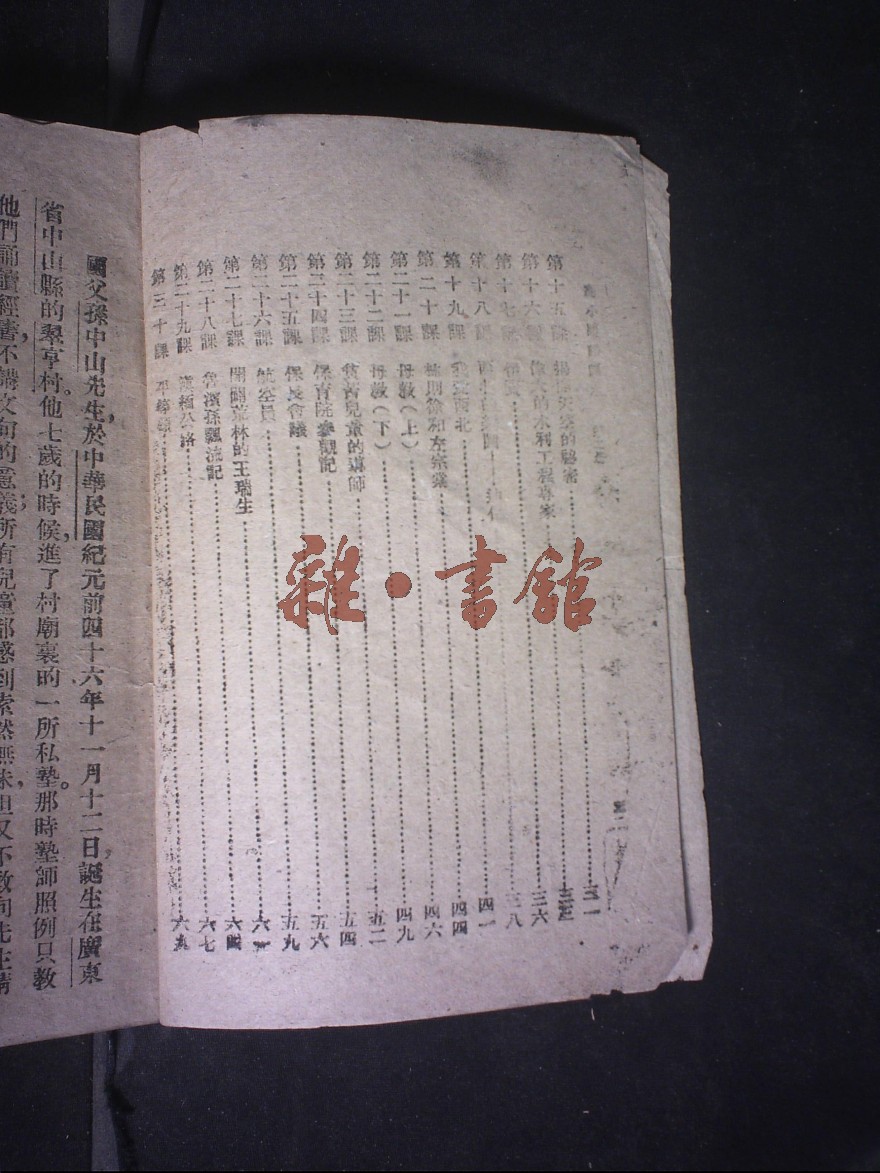 第十五課
第十六課 偉大的水利工程專家
第十七課
第十八課
第十九課
第二十課 林則徐和左宗棠
第二十一課 母教(上)
第二十二課 母教(下)
第二十三課 貧苦兒童的導師
第二十四課 保育院參觀記
第二十五課 保長會議
第二十六課 航空員
第二十七課 開闢荒林的王瑞生
第二十八課 魯濱孫飄流記
第二十九課 滇緬公路
第三十課
三一
三六
三八
四一
四四
四六
四九
五二
五四
五六
五九
六一
六四
六七
六九
雜·書館
國父孫中山先生,於中華民國紀元前四十六年十一月十二日,誕生在廣東
省中山縣的翠亨村。他七歲的時候,進了村廟裏的一所私塾。那時塾師照例只教
他們誦讀經書,不講文句的意義;所有兒童都感到索然無味,但又不敢向先生請